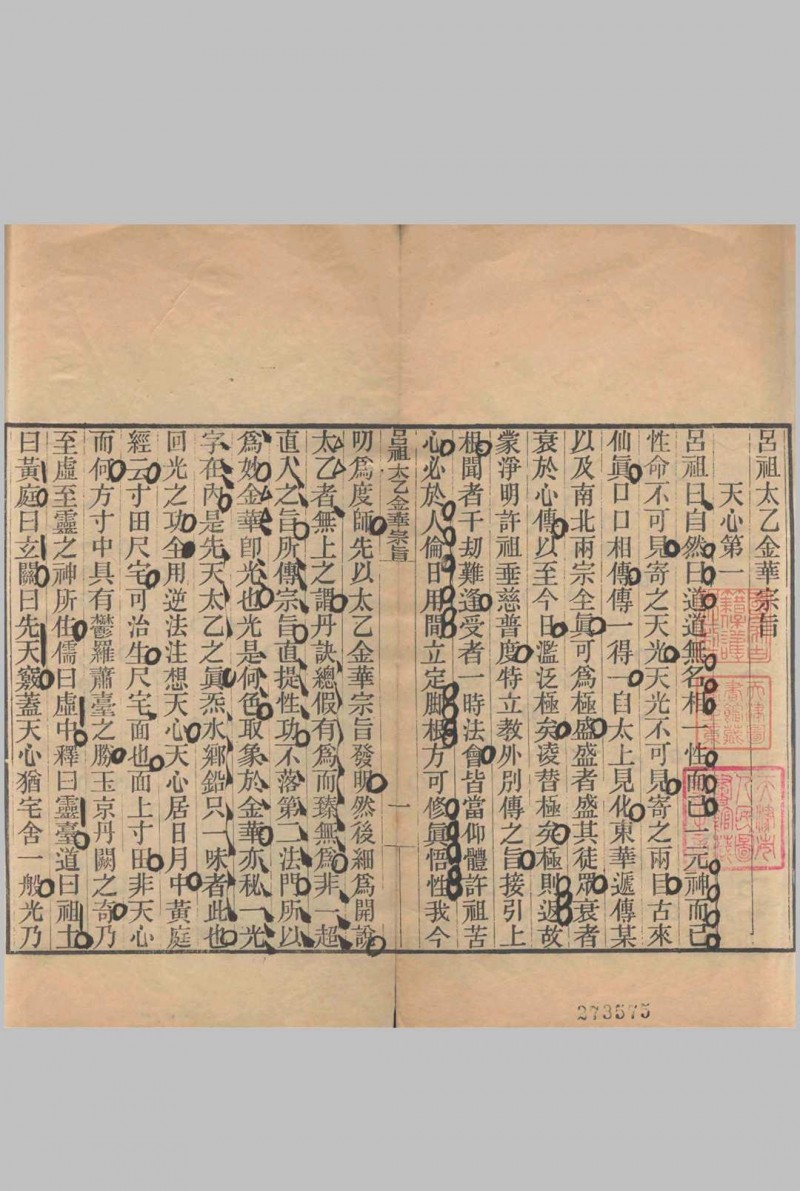 呂祖太乙金華宗旨
天心第一
呂祖曰自然曰道道無名相一性而已一元神而已
性命不可見寄之天光天光不可見寄之兩目古來
仙眞口口相傳傳一得一自太上見化東華遞傳某
以及南北兩宗全眞可爲極盛盛者盛其徒眾衰者
衰於心傳以至今日濫泛極矣凌替極矣極則返故
蒙淨明許祖垂慈普度特立教外別傳之旨接引上
根聞者千劫難逢受者一時法會皆當仰體許祖苦
心必於人倫日用間立定脚根方可修眞悟性我今
呂祖太乙金華宗旨 一
叨爲度師先以太乙金華宗旨發明然後細爲開說
太乙者無上之謂丹訣總假有爲而臻無爲非一超
直入之旨所傳宗旨直提性功不落第二法門所以
爲妙金華卽光也光是何色取象於金華亦秘一光
字在內是先天太乙之眞炁水鄉鉛只一味者此也
回光之功全用逆法注想天心天心居日月中黃庭
經云寸田尺宅可治生尺宅面也面上寸田非天心
而何方寸中具有鬱羅蕭臺之勝玉京丹闕之奇乃
至虛至靈之神所住儒曰虛中釋曰靈臺道曰祖土
曰黃庭曰玄關曰先天竅蓋天心猶宅舍一般光乃
273575